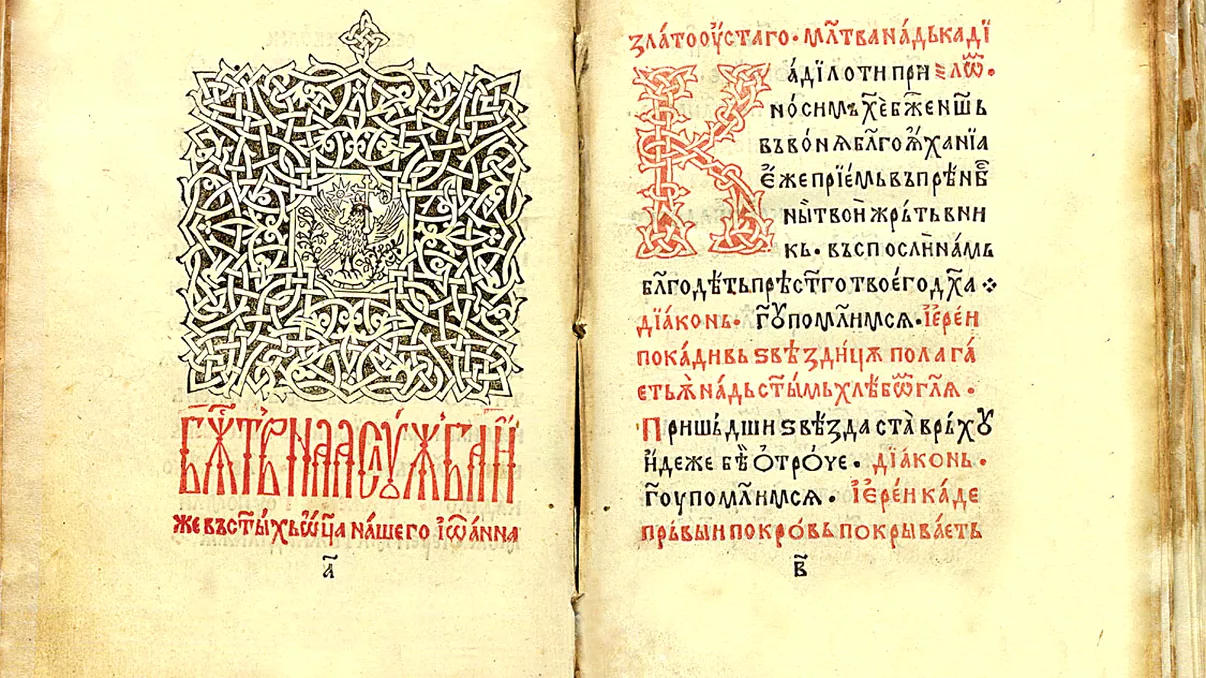 БЖ҃ТВЬНАА СЛꙋЖБА И
же въ ст҃ыхь ѡ҃ца на́шего іѡ҃а́нна
а҃
златоꙋ́стаго · мл҃тва на́дь кади
а́дїло ти при
но́симъ хє҃ бж҃е нш҃ь
въ во́нѧ бл҃гоꙋха́нїа
є́же прїе́мь въ прѣ́нб҃
ны̀ твоѝ жрь́тьвни
кь · въспослѝ на́мь
бл҃годѣ́ть прѣст҃го твоего̀ дх҃а ⁘
дїа́конь · гꙋ҃ помл҃имсѧ · їере́и
пока́дивь ѕвѣзди́цѫ полага́
еть ѫ̀ на́дь ст҃ы́мь хлѣ́бѡ҃ гл҃ѧ ·
Пришь́дши ѕвѣзда̀ ста̀ врь́хꙋ
и҆́деже бѣ̀ ѻтро́че · дїа́конь ·
гоу҃ помл҃имсѧ · їере́и ка́де
прь́выи покро́вь покрыва́еть
в҃